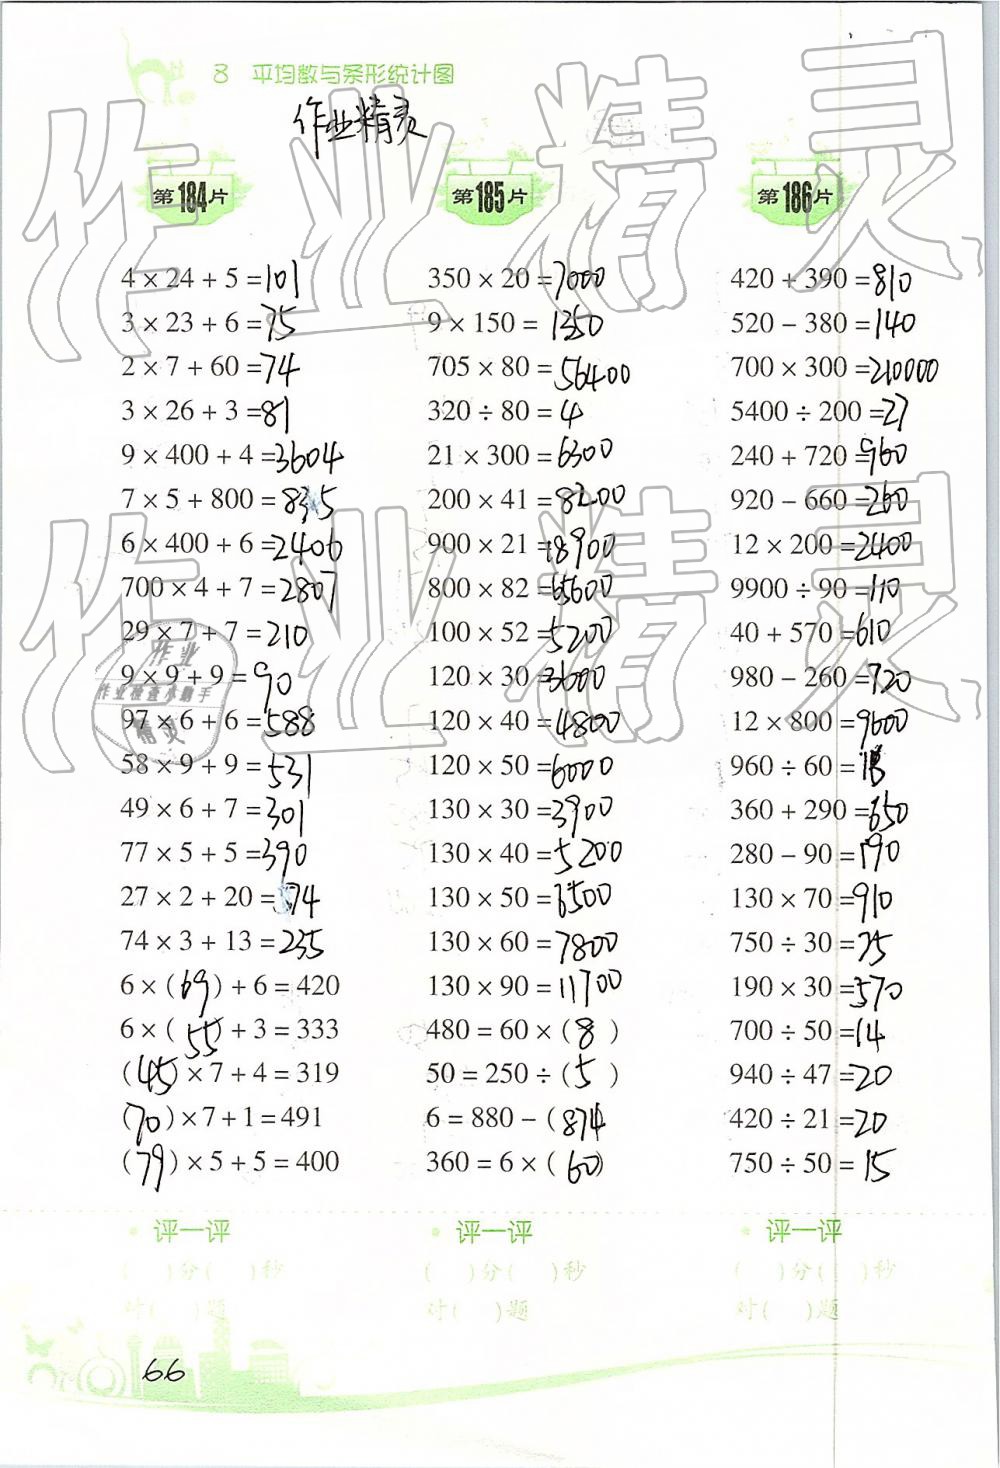 8 平均数与条形统计图
作业精灵
第184片
4 × 24 + 5 = 101
3 × 23 + 6 = 75
2 × 7 + 60 = 74
3 × 26 + 3 = 81
9 × 400 + 4 = 3604
7 × 5 + 800 = 835
6 × 400 + 6 = 2406
700 × 4 + 7 = 2807
29 × 7 + 7 = 210
9 × 9 + 9 = 90
97 × 6 + 6 = 588
58 × 9 + 9 = 531
49 × 6 + 7 = 301
77 × 5 + 5 = 390
27 × 2 + 20 = 74
74 × 3 + 13 = 235
6 × ( 69 ) + 6 = 420
6 × ( 55 ) + 3 = 333
( 45 ) × 7 + 4 = 319
( 70 ) × 7 + 1 = 491
( 79 ) × 5 + 5 = 400
评一评
( )分( )秒
对( )题
第185片
350 × 20 = 7000
9 × 150 = 1350
705 × 80 = 56400
320 ÷ 80 = 4
21 × 300 = 6300
200 × 41 = 8200
900 × 21 = 18900
800 × 82 = 65600
100 × 52 = 5200
120 × 30 = 3600
120 × 40 = 4800
120 × 50 = 6000
130 × 30 = 3900
130 × 40 = 5200
130 × 50 = 6500
130 × 60 = 7800
130 × 90 = 11700
480 = 60 × ( 8 )
50 = 250 ÷ ( 5 )
6 = 880 − ( 874 )
360 = 6 × ( 60 )
评一评
( )分( )秒
对( )题
第186片
420 + 390 = 810
520 − 380 = 140
700 × 300 = 210000
5400 ÷ 200 = 27
240 + 720 = 960
920 − 660 = 260
12 × 200 = 2400
9900 ÷ 90 = 110
40 + 570 = 610
980 − 260 = 720
12 × 800 = 9600
960 ÷ 60 = 16
360 + 290 = 650
280 − 90 = 190
130 × 70 = 910
750 ÷ 30 = 25
190 × 30 = 570
700 ÷ 50 = 14
940 ÷ 47 = 20
420 ÷ 21 = 20
750 ÷ 50 = 15
评一评
( )分( )秒
对( )题
66
作业精灵
作业精灵
作业
作业检查小助手
精灵